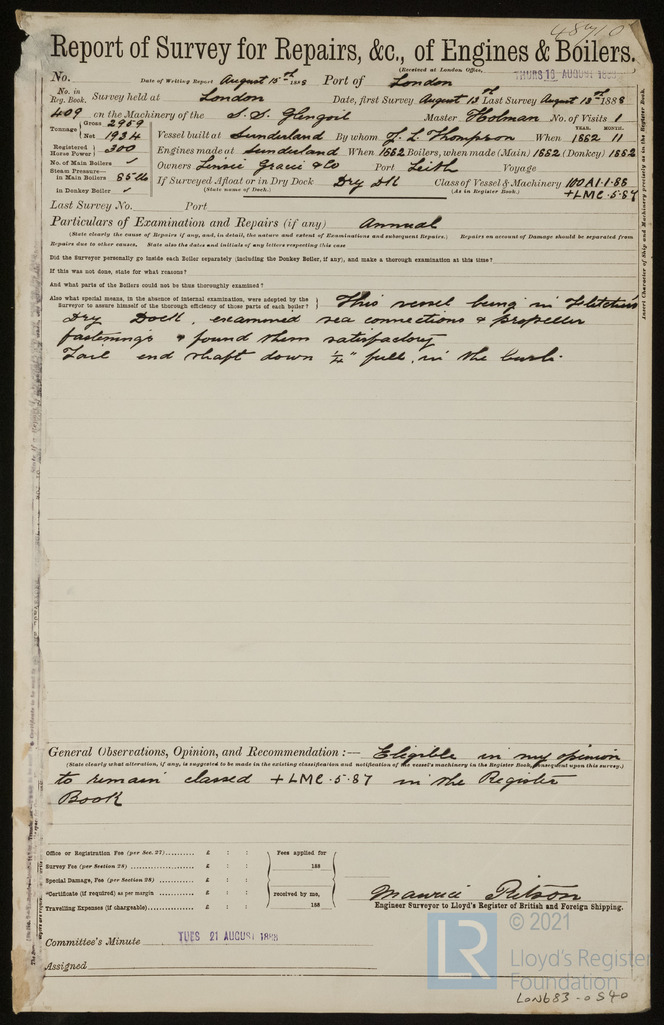 Report of Survey for Repairs, &c., of Engines & Boilers.
(Received at London Office,
THURS 16 AUGUST 1888
No. Date of Writing Report August 15th 1888 Port of London
No. in Reg. Book. Survey held at London Date, first Survey August 13th Last Survey August 13th 1888
409 on the Machinery of the S.S. Glengoil Master Holman No. of Visits 1
Tonnage Gross 2959 Net 1934 Vessel built at Sunderland By whom J. L. Thompson When YEAR. 1882 MONTH. 11
Registered Horse Power 300 Engines made at Sunderland When 1882 Boilers, when made (Main) 1882 (Donkey) 1882
No. of Main Boilers ✓ Owners Gracie & Co Port Leith Voyage
Steam Pressure— in Main Boilers 85 lb If Surveyed Afloat or in Dry Dock Dry Dk Class of Vessel & Machinery 100A1-1-88
in Donkey Boiler ✓ (State name of Dock.) (As in Register Book.) +LMC·5·87
Last Survey No. Port
Particulars of Examination and Repairs (if any) Annual
(State clearly the cause of Repairs if any, and, in detail, the nature and extent of Examinations and subsequent Repairs.) Repairs on account of Damage should be separated from
Repairs due to other causes. State also the dates and initials of any letters respecting this case
Did the Surveyor personally go inside each Boiler separately (including the Donkey Boiler, if any), and make a thorough examination at this time?
If this was not done, state for what reasons?
And what parts of the Boilers could not be thus thoroughly examined?
Also what special means, in the absence of internal examination, were adopted by the
Surveyor to assure himself of the thorough efficiency of those parts of each boiler? This vessel being in Fletchers
Dry Dock, examined sea connections & propeller
fastenings & found them satisfactory
Tail end shaft down 1/4" full, in the bush.
Insert Character of Ship and Machinery precisely as in the Register Book.
General Observations, Opinion, and Recommendation :— Eligible in my opinion
(State clearly what alteration, if any, is suggested to be made in the existing classification and notification of the vessel's machinery in the Register Book, consequent upon this survey.)
to remain classed +LMC·5·87 in the Register
Book
Office or Registration Fee (per Sec. 27).......... £ : : Fees applied for
Survey Fee (per Section 28) .......... £ : : 188
Special Damage, Fee (per Section 28) £ : :
*Certificate (if required) as per margin .......... £ : : received by me,
Travelling Expenses (if chargeable).......... £ : : 188
Maurice Ritson
Engineer Surveyor to Lloyd's Register of British and Foreign Shipping.
Committee's Minute TUES 21 AUGUST 1888
Assigned
© 2021
LR
Lloyd's Register
Foundation
LON683-0540